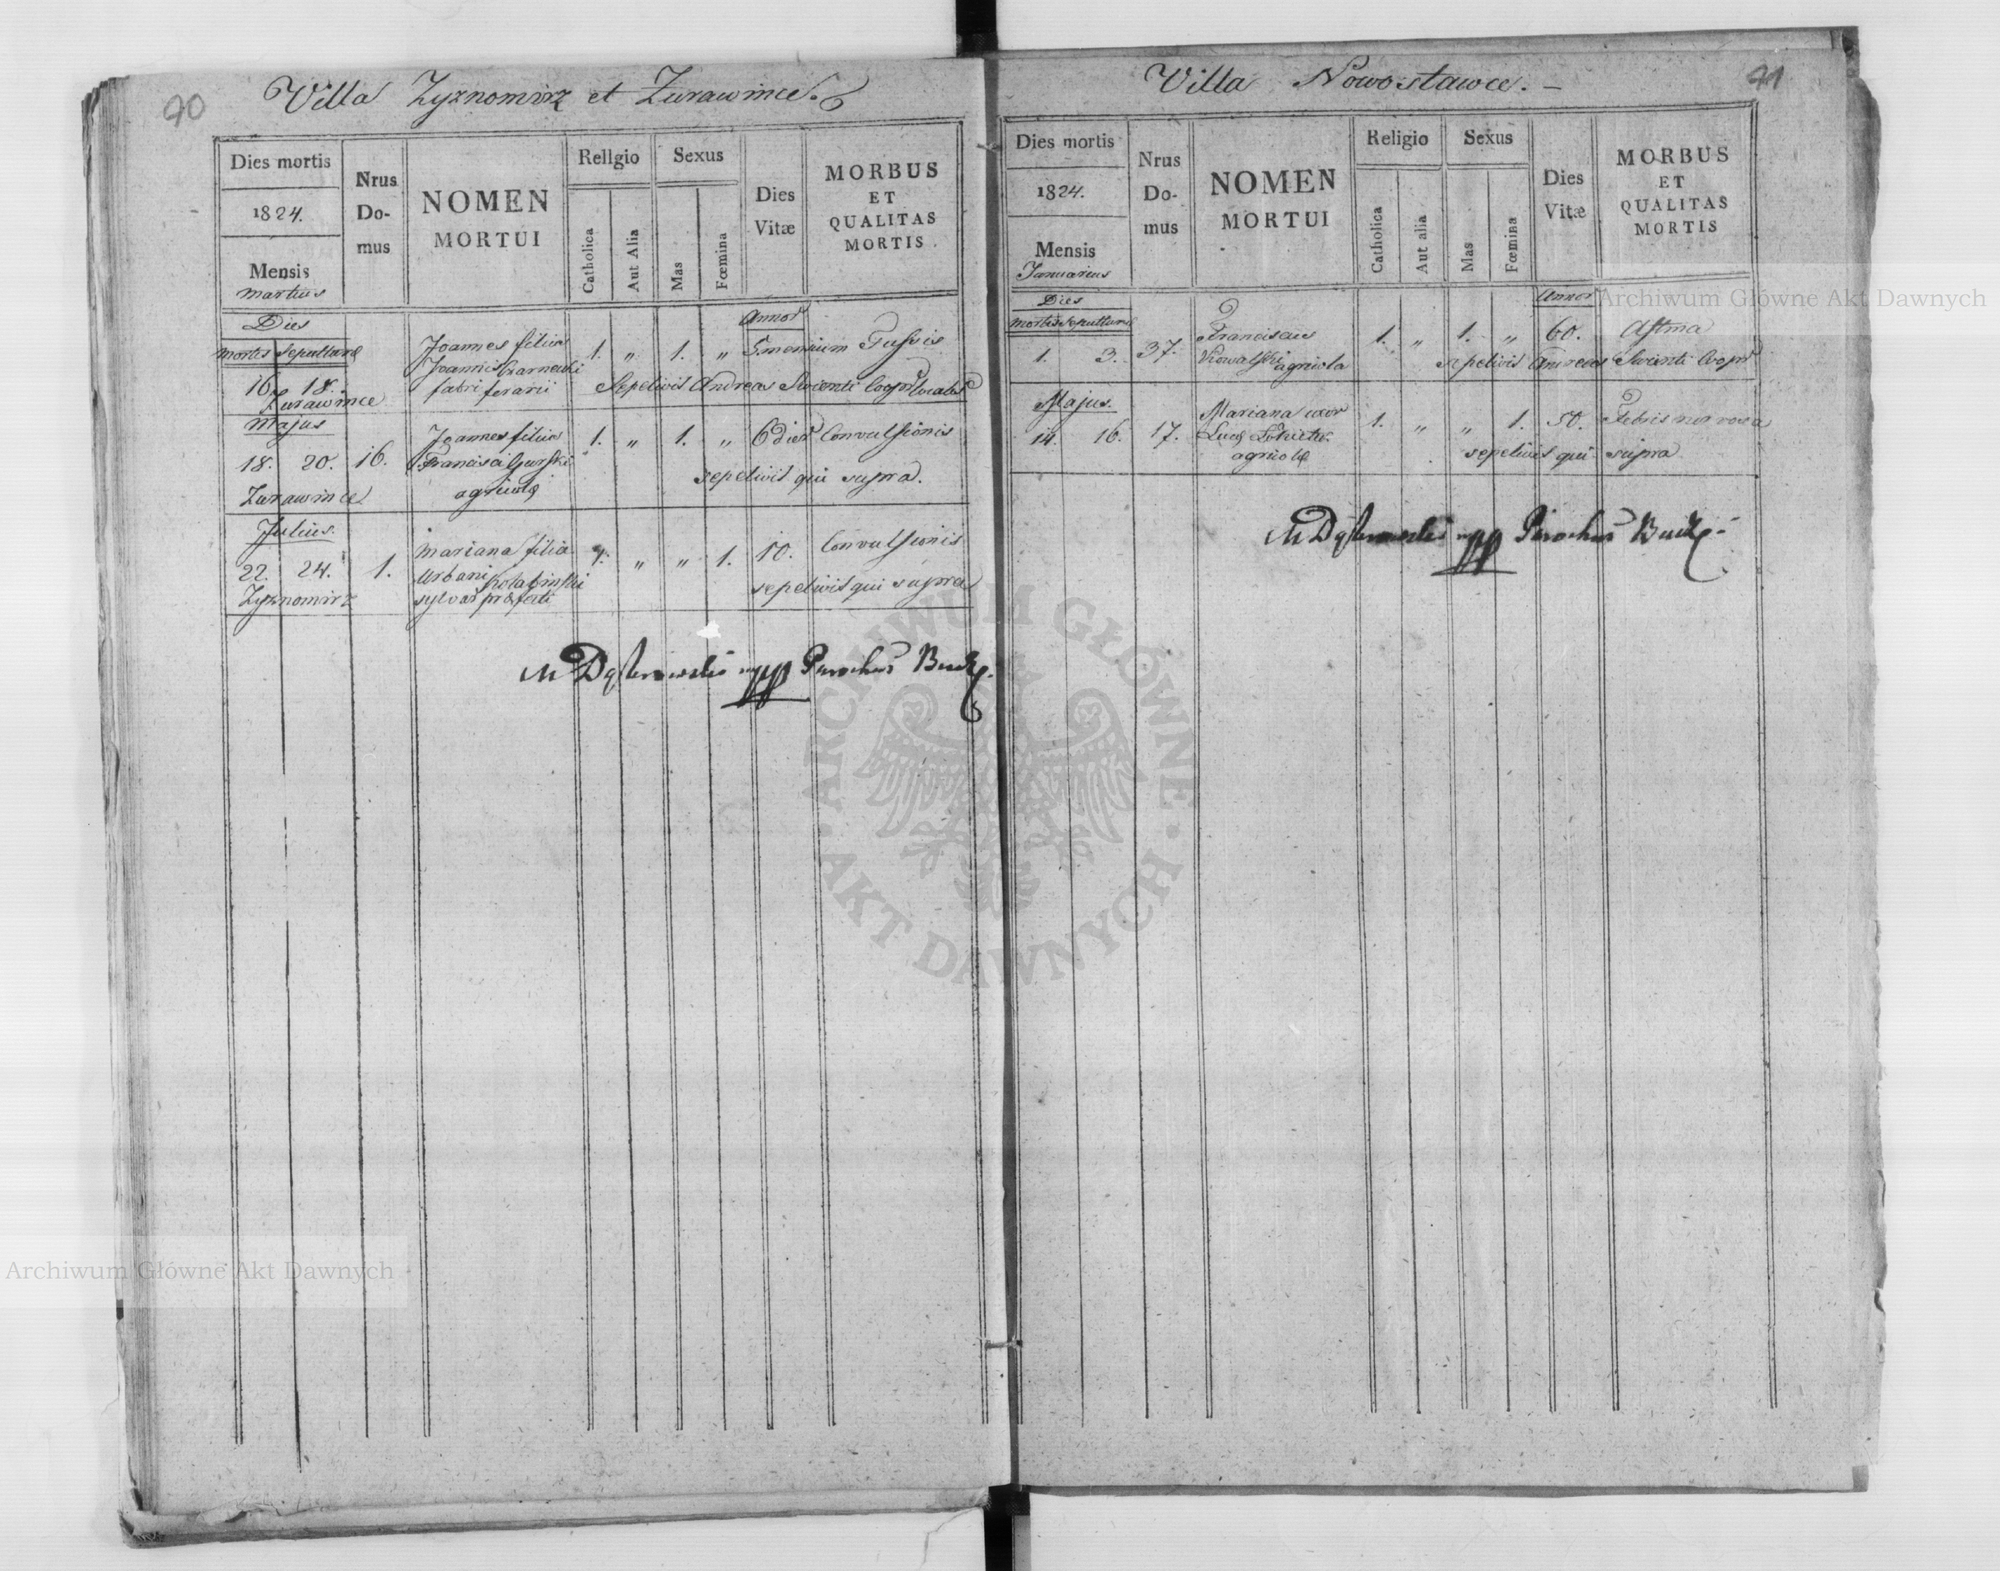 90
Villa Zyznomirz et Zurawince.
Dies mortis
1824.
Mensis
Martius
Nrus
Do-
mus
NOMEN
MORTUI
Religio
Catholica
Aut Alia
Sexus
Mas
Fœmina
Dies
Vitæ
MORBUS
ET
QUALITAS
MORTIS.
Dies
Annor
mortis Sepulturæ
Joannes filius
Joannis Czarnecki
fabri ferarii
16. 18.
Zurawince
1. „ 1. „ 5 mensium Tussis
Sepelivit Andreas Swienti Coopr localis
Majus
18. 20. 16.
Zurawince
Joannes filius
Francisci Gurski
agricolæ
1. „ 1. „ 6 dier Convulsionis
sepelivit qui supra.
Julius.
22. 24. 1.
Zyznomirz
Mariana filia
Urbani
sylvar præfecti
1. „ „ 1. 10. Convulsionis
sepelivit qui supra
Parochus Bucz.
91
Villa Nowostawce. –
Dies mortis
1824.
Mensis
Januarius
Nrus
Do-
mus
NOMEN
MORTUI
Religio
Catholica
Aut alia
Sexus
Mas
Fœmina
Dies
Vitæ
MORBUS
ET
QUALITAS
MORTIS
Dies
Annor
mortis Sepulturæ
1. 3. 37.
Franciscus
Kowalski agricola
1. „ 1. „ 60. Astma
sepelivit Andreas Swienti Coopr
Majus.
14. 16. 17.
Mariana uxor
Lucæ
agricolæ
1. „ „ 1. 50. Febris nervosa
sepelivit qui supra
Parochus Bucz.
Archiwum Główne Akt Dawnych
Archiwum Główne Akt Dawnych
ARCHIWUM GŁÓWNE · AKT DAWNYCH ·